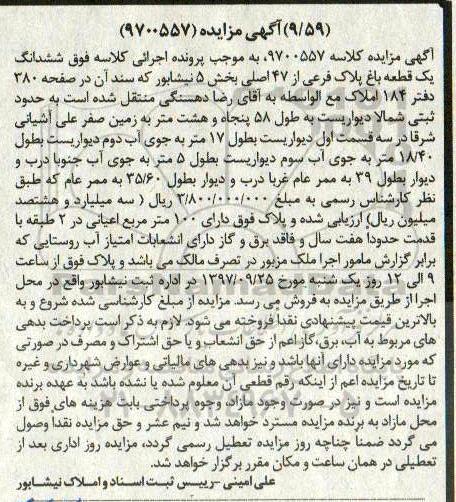 (۹/۵۹) آگهی مزایده (۹۷۰۰۵۵۷)
آگهی مزایده کلاسه ۹۷۰۰۵۵۷، به موجب پرونده اجرائی کلاسه فوق ششدانگ
یک قطعه باغ پلاک فرعی از ۴۷ اصلی بخش ۵ نیشابور که سند آن در صفحه ۳۸۰
دفتر ۱۸۴ املاک مع الواسطه به آقای رضا دهسنگی منتقل شده است به حدود
ثبتی شمالا دیواریست به طول ۵۸ پنجاه و هشت متر به زمین صفر علی آشیانی
شرقا در سه قسمت اول دیواریست بطول ۱۷ متر به جوی آب دوم دیواریست بطول
۱۸/۴۰ متر به جوی آب سوم دیواریست بطول ۵ متر به جوی آب جنوبا درب و
دیوار بطول ۳۹ به ممر عام غربا درب و دیوار بطول ۳۵/۶۰ به ممر عام که طبق
نظر کارشناس رسمی به مبلغ ۳/۸۰۰/۰۰۰/۰۰۰ ریال ( سه میلیارد و هشتصد
میلیون ریال) ارزیابی شده و پلاک فوق دارای ۱۰۰ متر مربع اعیانی در ۲ طبقه با
قدمت حدودا هفت سال و فاقد برق و گاز دارای انشعابات امتیاز آب روستایی که
برابر گزارش مامور اجرا ملک مزبور در تصرف مالک می باشد و پلاک فوق از ساعت
۹ الی ۱۲ روز یک شنبه مورخ ۱۳۹۷/۰۹/۲۵ در اداره ثبت نیشابور واقع در محل
اجرا از طریق مزایده به فروش می رسد. مزایده از مبلغ کارشناسی شده شروع و به
بالاترین قیمت پیشنهادی نقدا فروخته می شود. لازم به ذکر است پرداخت بدهی
های مربوط به آب، برق، گاز اعم از حق انشعاب و یا حق اشتراک و مصرف در صورتی
که مورد مزایده دارای آنها باشد و نیز بدهی های مالیاتی و عوارض شهرداری و غیره
تا تاریخ مزایده اعم از اینکه رقم قطعی آن معلوم شده یا نشده باشد به عهده برنده
مزایده است و نیز در صورت وجود مازاد، وجوه پرداختی بابت هزینه های فوق از
محل مازاد به برنده مزایده مسترد خواهد شد و نیم عشر و حق مزایده نقدا وصول
می گردد ضمنا چناچه روز مزایده تعطیل رسمی گردد، مزایده روز اداری بعد از
تعطیلی در همان ساعت و مکان مقرر برگزار خواهد شد.
علی امینی -رییس ثبت اسناد و املاک نیشابور